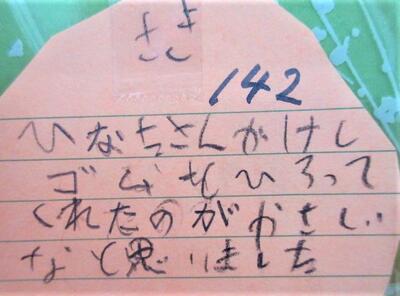 ささ
142
ひなちさんがけし
ゴムをひろって
くれたのがやさしい
なと思いました